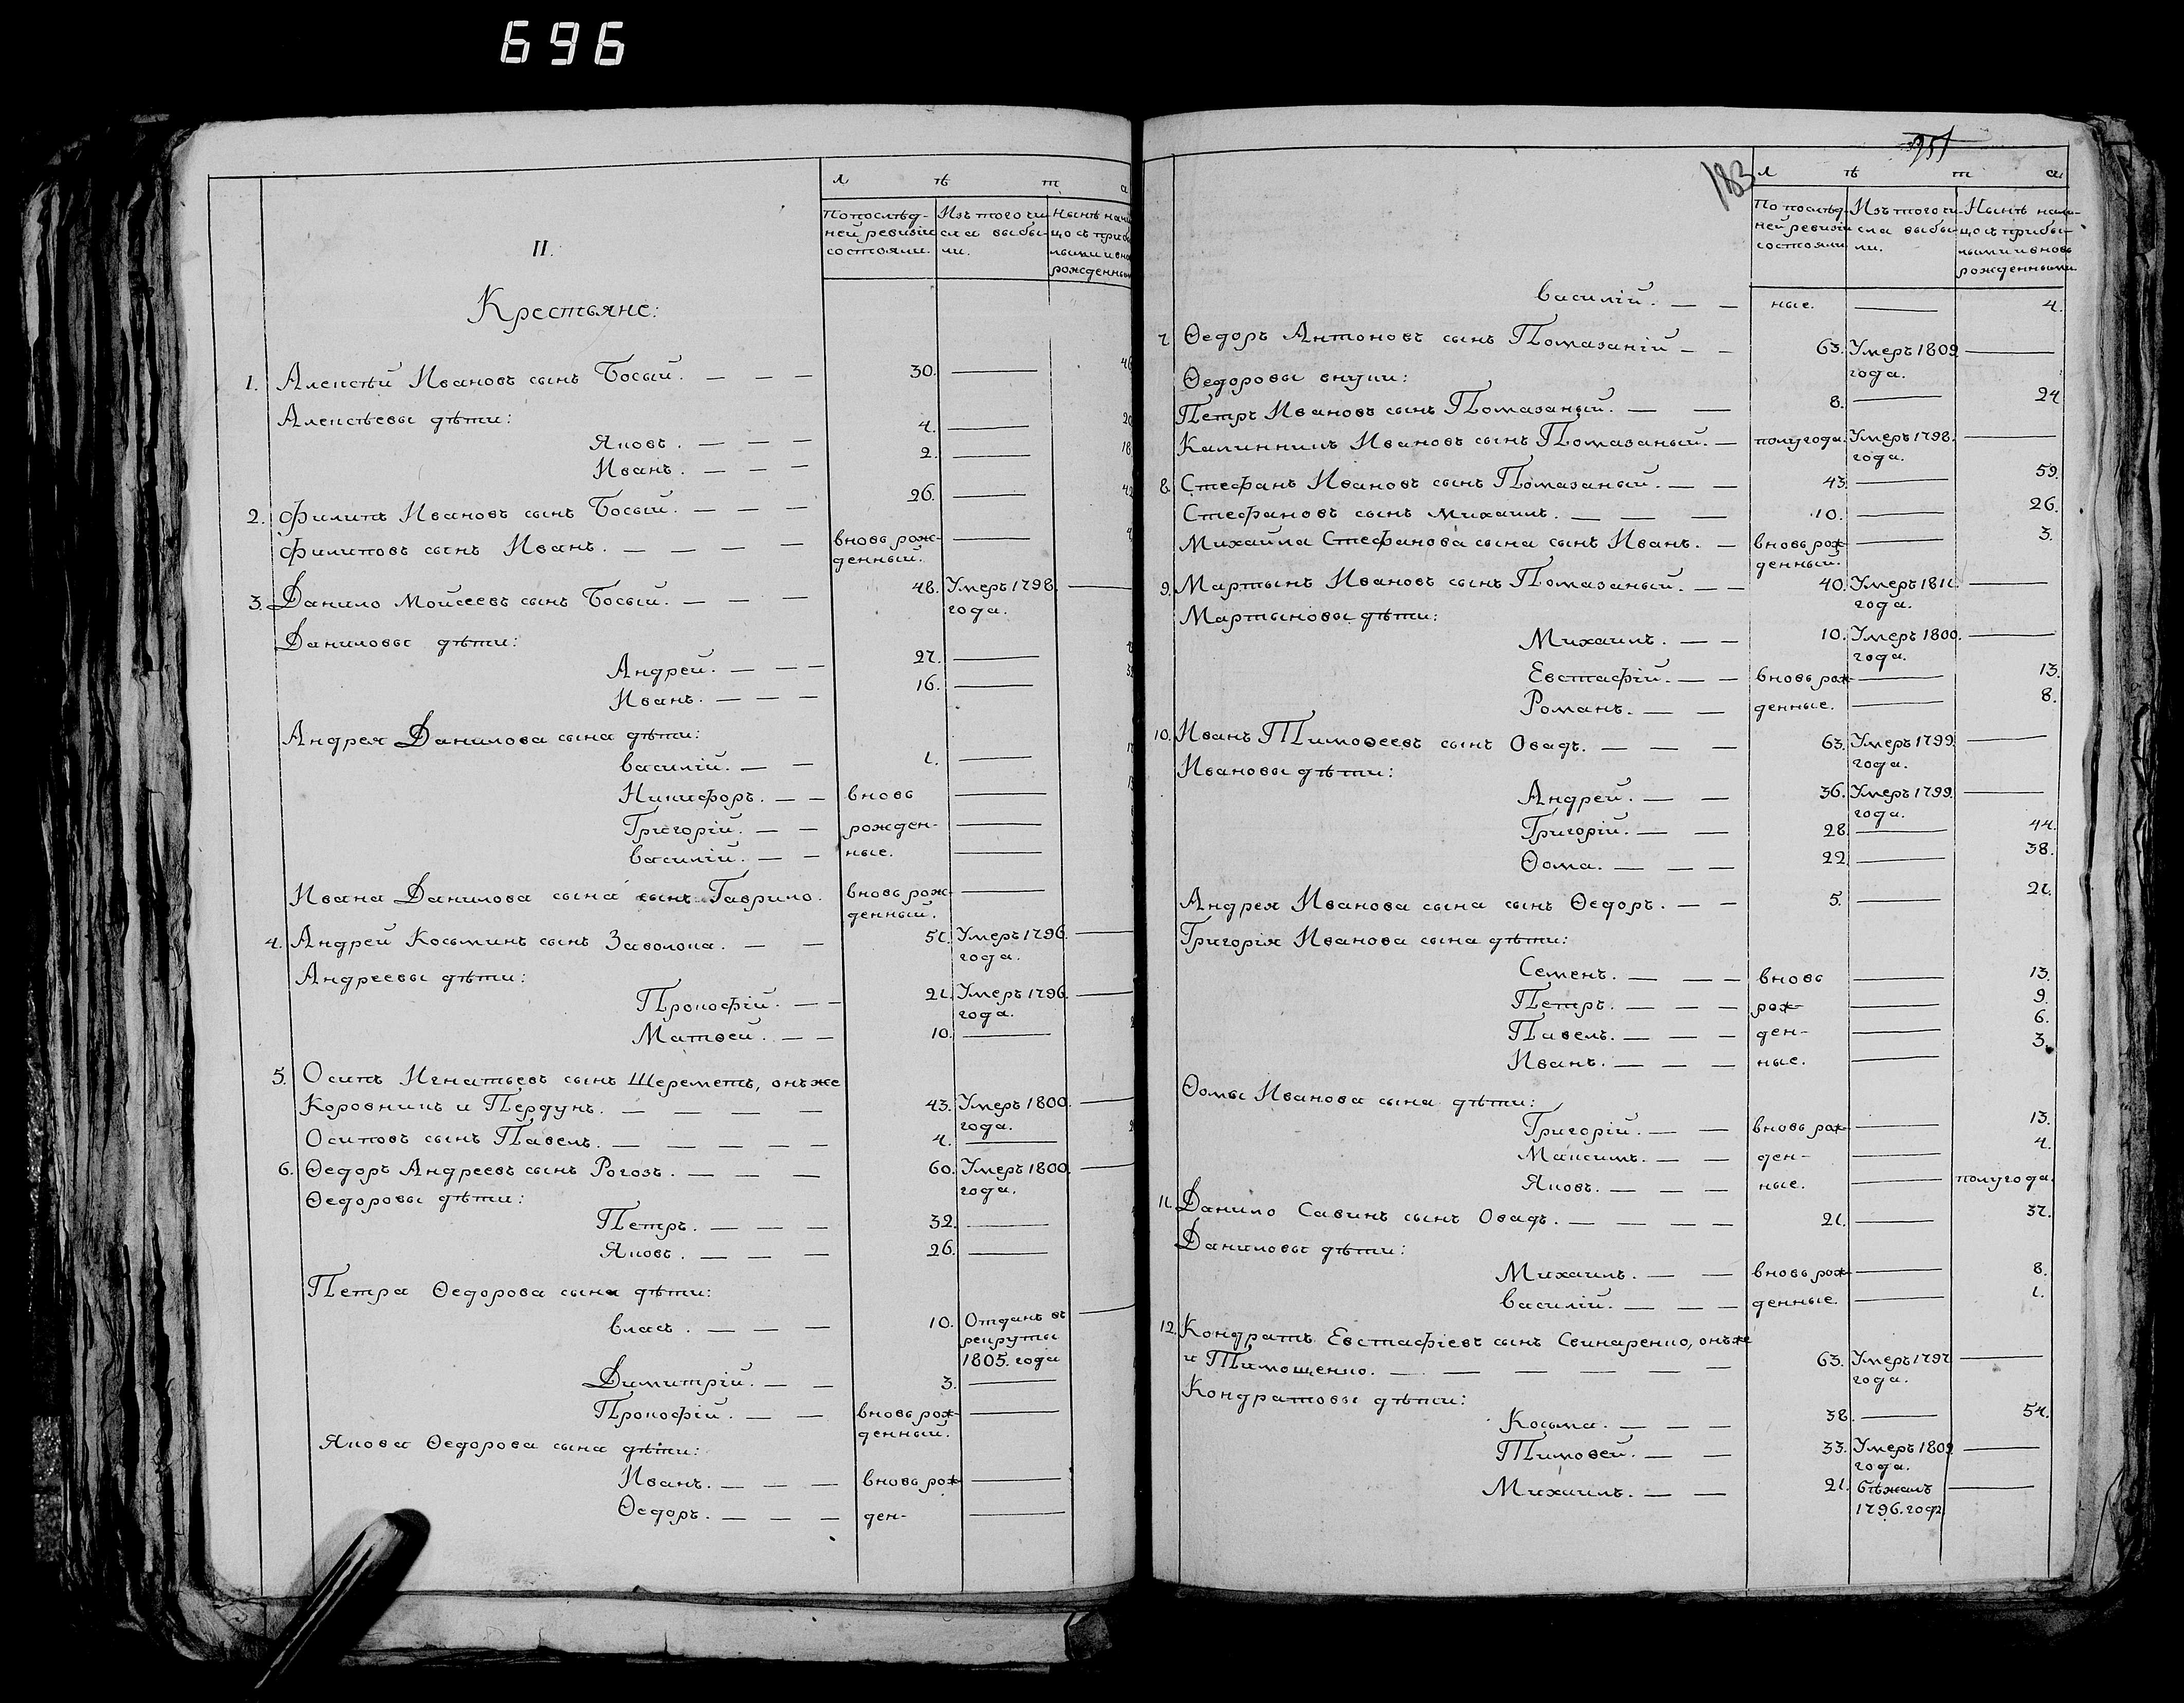 696
II.
Крестьяне:
л ѣ т а
По послѣд-
ней ревизіи
состояли.
Изъ того чи-
сла выбы-
ли.
Нынѣ
рожденны
1. Алексѣй Ивановъ сынъ Босый. — — — 30. —
Алексѣевы дѣти:
Яковъ. — — — 4. —
Иванъ. — — — 2. — 18
2. Филипъ Ивановъ сынъ Босый. — — — 26. —
Филиповъ сынъ Иванъ. — — — — вновь рож- —
денный.
3. Данило Мойсеевъ сынъ Босый. — — — 48. Умеръ 1798. —
года.
Даниловы дѣти:
Андрей. — — — 27. —
Иванъ. — — — 16. —
Андрея Данилова сына дѣти:
Василій. — — 1. —
Никифоръ. — — вновь —
Григорій. — — рожден- —
Василій. — — ные. —
Ивана Данилова сына сынъ Гаврило. вновь рож- —
денный.
4. Андрей Косьминъ сынъ Заволока. — — 51. Умеръ 1796. —
года.
Андреевы дѣти:
Прокофій. — — 21. Умеръ 1796. —
года.
Матвей. — — 10. —
5. Осипъ Игнатьевъ сынъ Шереметъ, онъ же
Коровникъ и Пердунъ. — — — — 43. Умеръ 1800. —
года.
Осиповъ сынъ Павелъ. — — — — — 4. —
6. Ѳедоръ Андреевъ сынъ Рогозъ. — — — 60. Умеръ 1800. —
года.
Ѳедоровы дѣти:
Петръ. — — — 32. —
Яковъ. — — — 26. —
Петра Ѳедорова сына дѣти:
Власъ. — — — 10. Отданъ въ —
рекруты
1805. года
Димитрій. — — 3. —
Прокофій. — — вновь рож- —
денный.
Якова Ѳедорова сына дѣти:
Иванъ. — — — вновь рож- —
Ѳедоръ. — — — ден- —
951
183
л ѣ т а.
По послѣд-
ней ревизіи
состояли
Изъ того чи-
сла выбы-
ли.
Нынѣ нали-
цо съ прибы-
лыми и вновь
рожденными
Василій. — — ные. — 4.
7. Ѳедоръ Антоновъ сынъ Помазаній — — 63. Умеръ 1809. —
года.
Ѳедоровы внуки:
Петръ Ивановъ сынъ Помазаный. — — 8. — 24
Калинникъ Ивановъ сынъ Помазаный. — полугода. Умеръ 1798. —
года.
8. Стефанъ Ивановъ сынъ Помазаный. — — 43. — 59.
Стефановъ сынъ Михаилъ. — — — 10. — 26.
Михайла Стефанова сына сынъ Иванъ. — вновь рож- — 3.
денный.
9. Мартынъ Ивановъ сынъ Помазаный. — — 40. Умеръ 1811. —
года.
Мартыновы дѣти:
Михаилъ. — — 10. Умеръ 1800. —
года.
Евстафій. — — вновь рож- — 13.
Романъ. — — денные. — 8.
10. Иванъ Тимоѳеевъ сынъ Овадъ. — — — 63. Умеръ 1799. —
года.
Ивановы дѣти:
Андрей. — — 36. Умеръ 1799. —
года.
Григорій. — — 28. — 44.
Ѳома. — — — 22. — 38.
Андрея Иванова сына сынъ Ѳедоръ. — — 5. — 21.
Григорія Иванова сына дѣти:
Семенъ. — — — вновь — 13.
Петръ. — — — рож- — 9.
Павелъ. — — — ден- — 6.
Иванъ. — — — ные. — 3.
Ѳомы Иванова сына дѣти:
Григорій. — — вновь рож- — 13.
Максимъ. — — ден- — 4.
Яковъ. — — — ные. — полугода.
11. Данило Савинъ сынъ Овадъ. — — — — 21. — 37.
Даниловы дѣти:
Михаилъ. — — вновь рож- — 8.
Василій. — — — денные. — 1.
12. Кондратъ Евстафіевъ сынъ Свинаренко, онъ же
и Тимощенко. — — — — — 63. Умеръ 1797 —
года.
Кондратовы дѣти:
Косьма. — — — 38. — 54.
Тимоѳей. — — 33. Умеръ 1809. —
года.
Михаилъ. — — 21. бѣжалъ —
1796. года